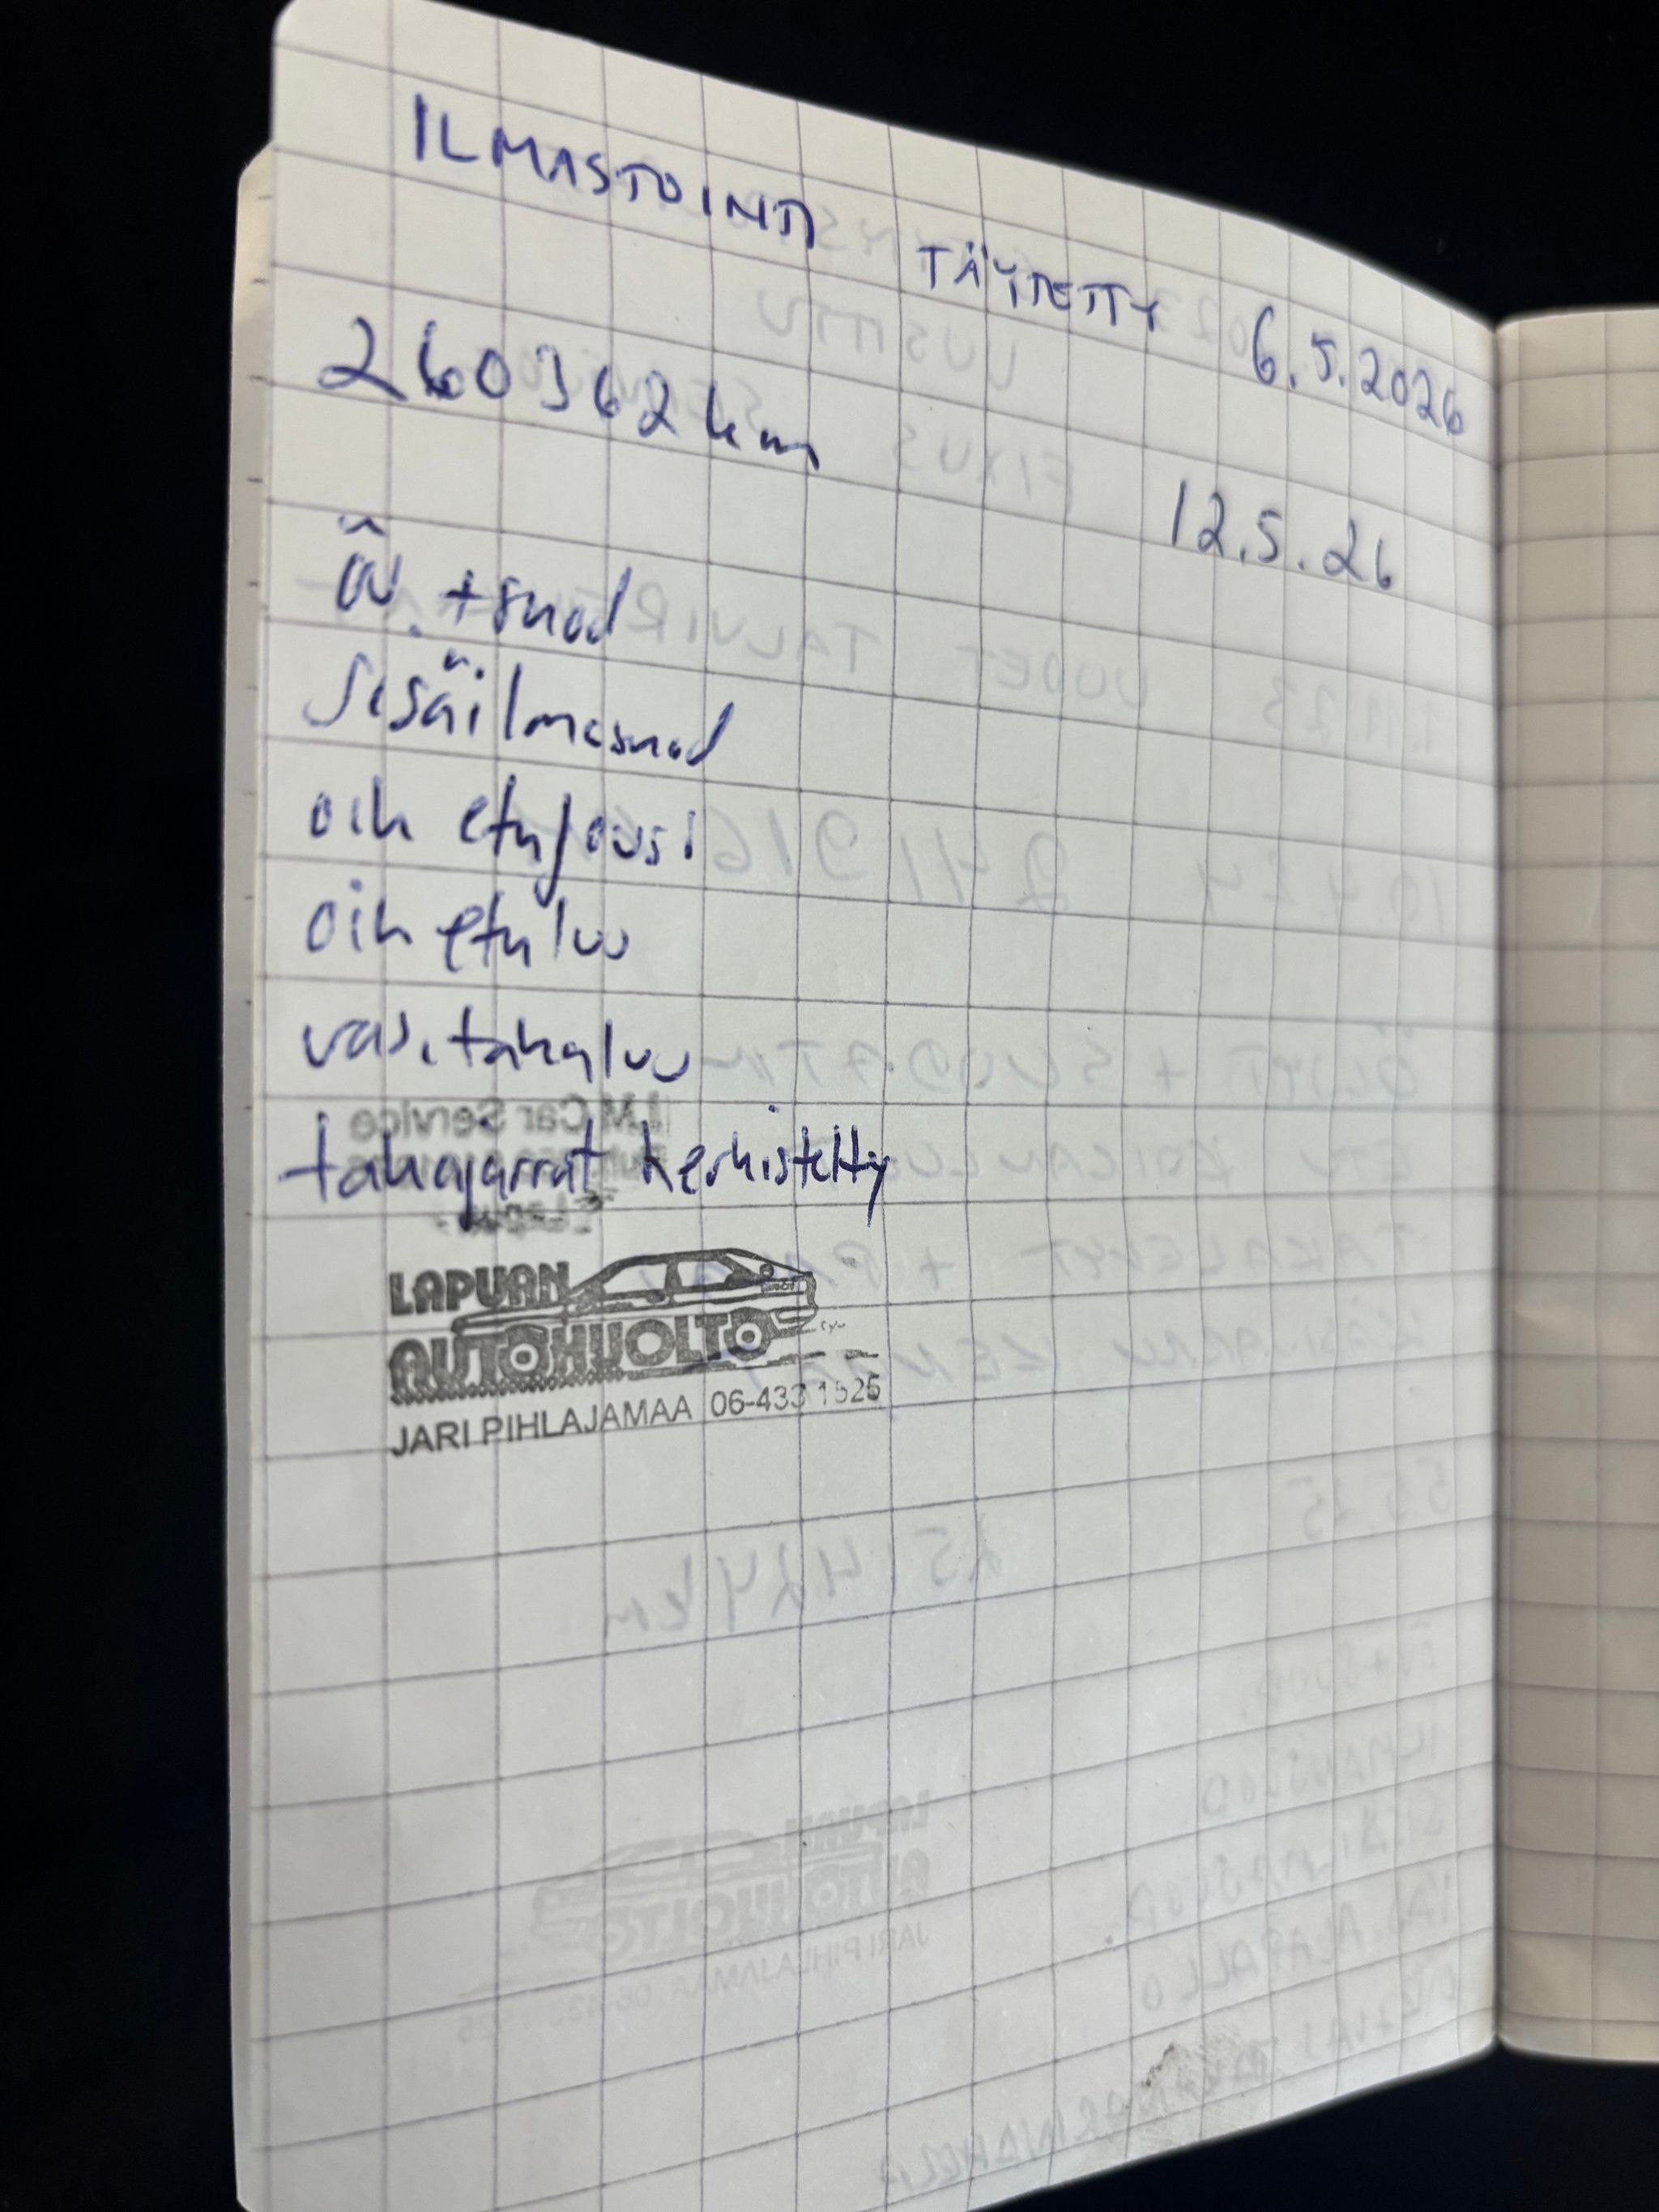 ILMASTOINTI TÄYTETTY 6.5.2026
260362 km 12.5.26
öv. + suod
Sisäilmasuod
oik etujousi
oik etuluu
vas. takaluu
takajarrut herkistetty
LAPUAN
AUTOHUOLTO
JARI PIHLAJAMAA 06-433 1525